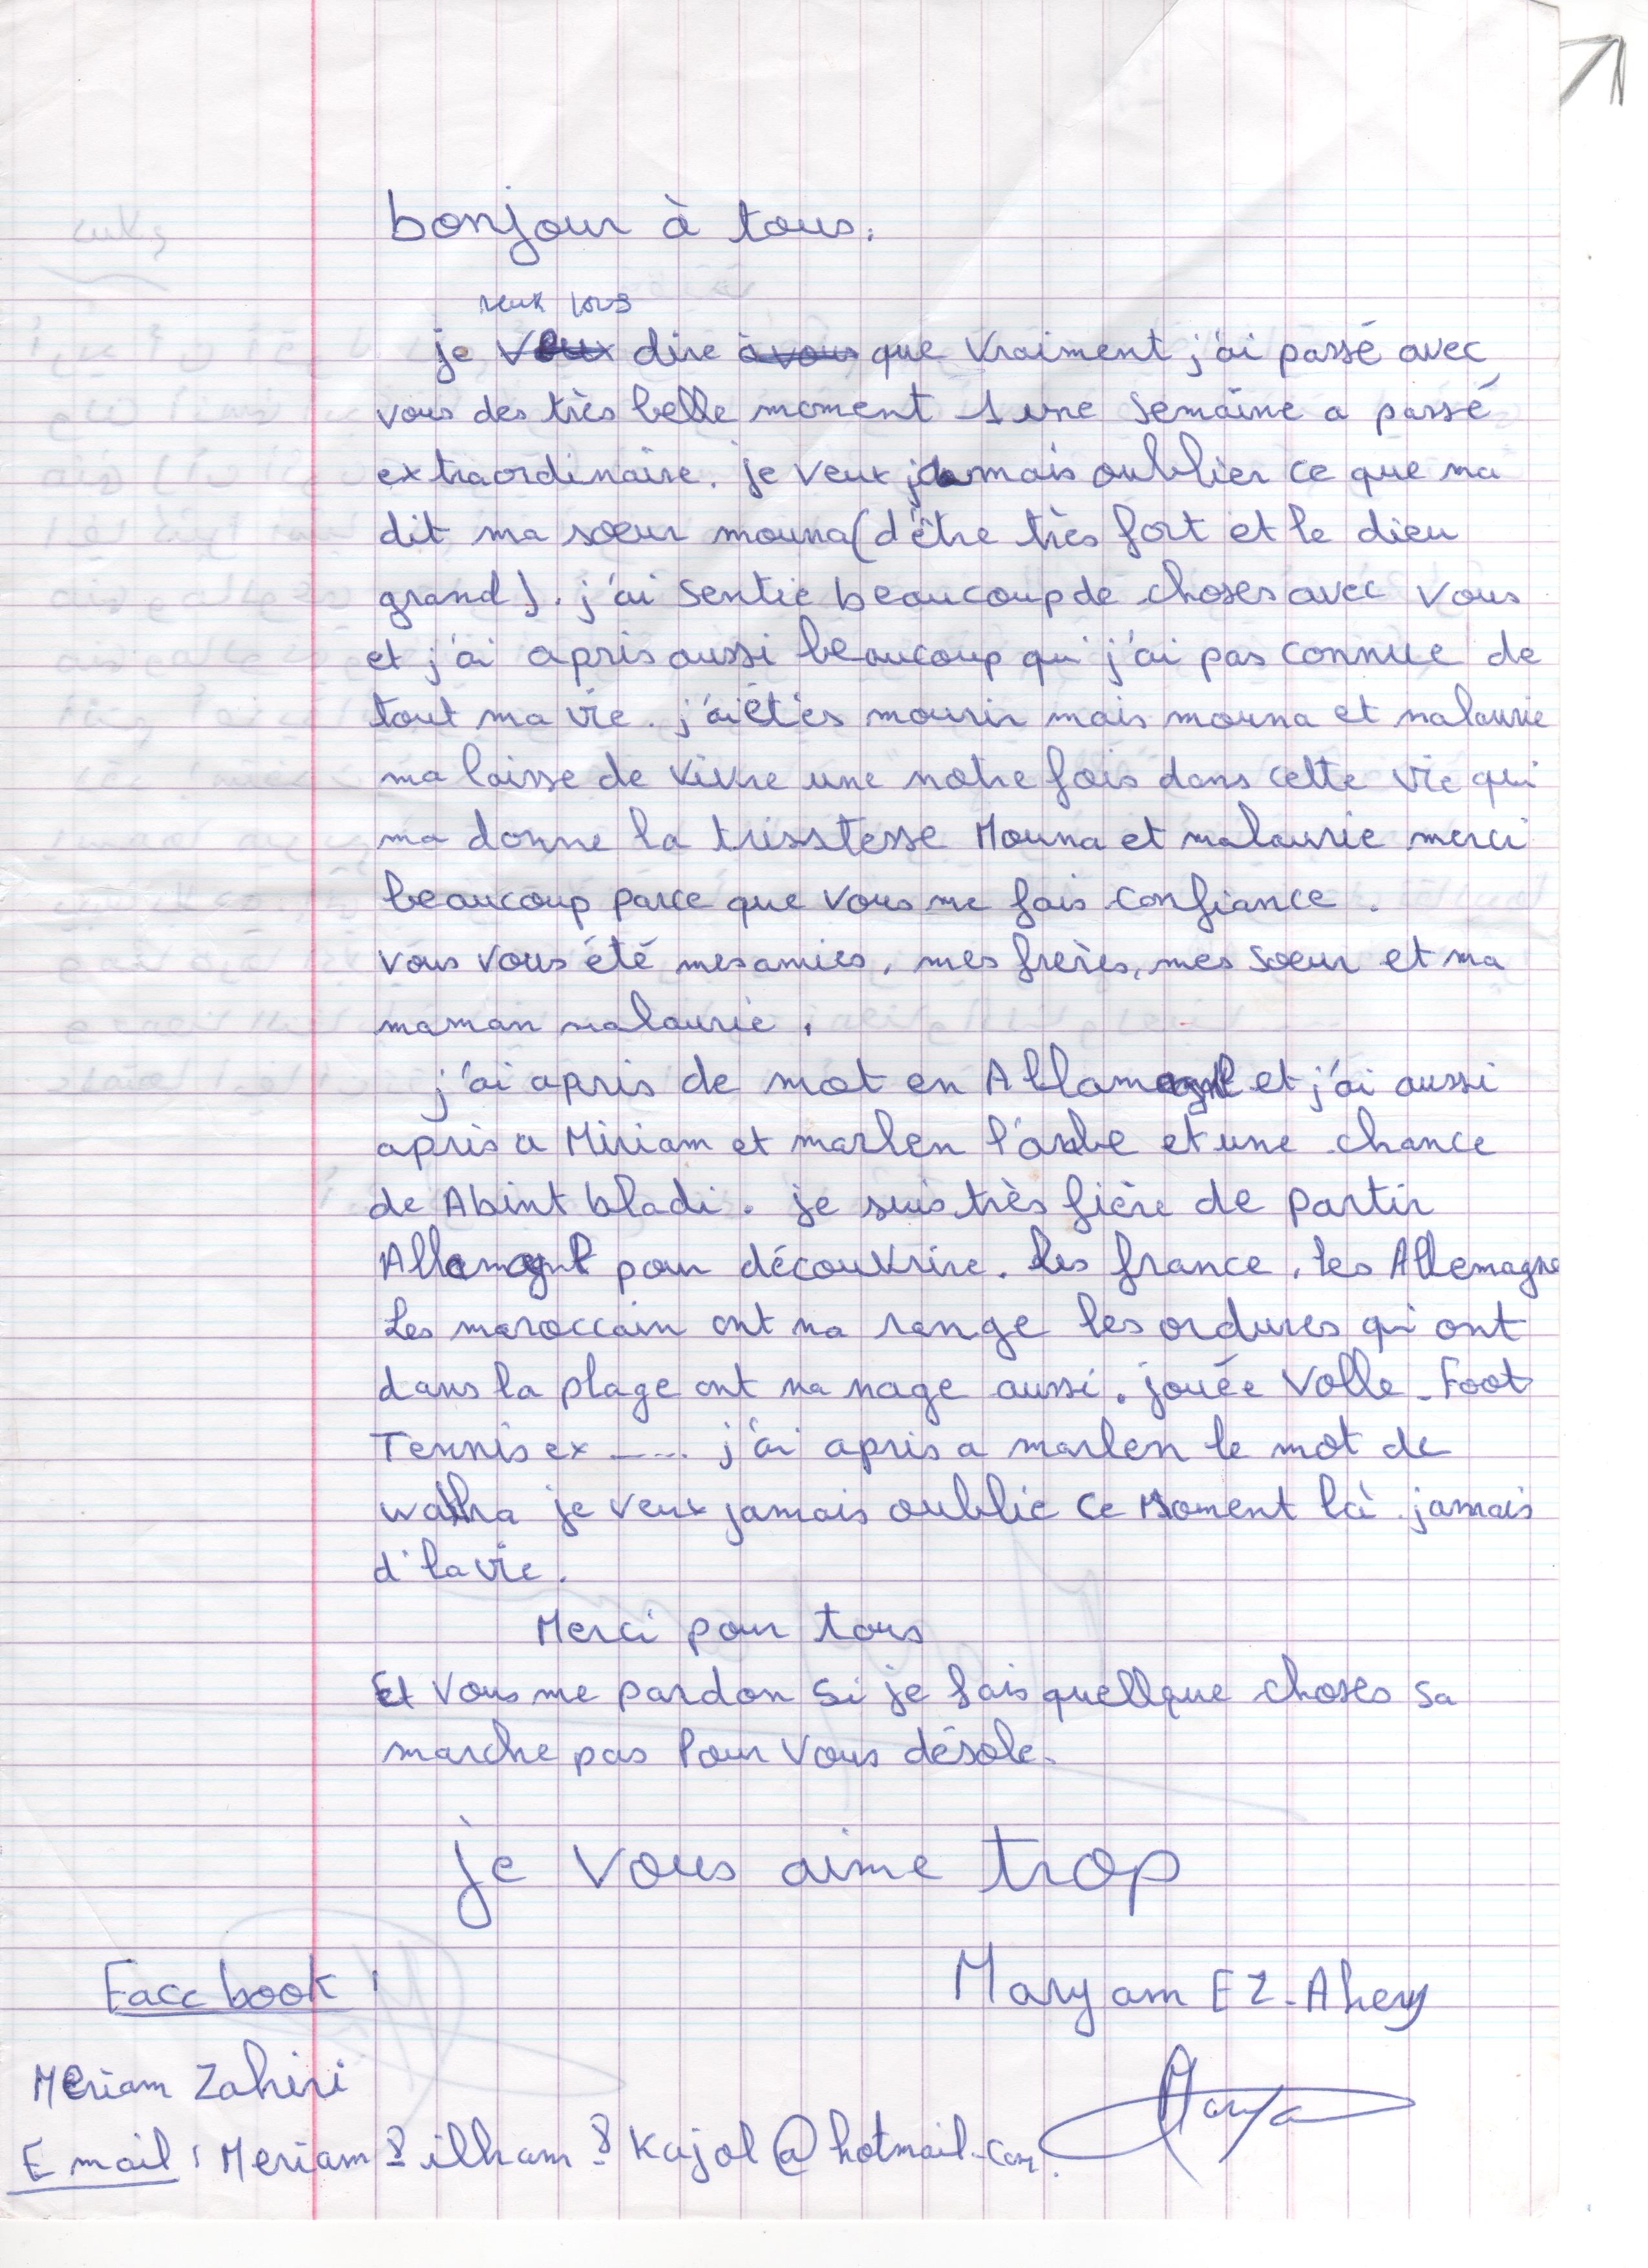 bonjour à tous.
veux vous
je dire que vraiment j'ai passé avec
vous des très belle moment 1 une semaine a passé
extraordinaire. je veux jamais oublier ce que ma
dit ma sœur mouna (d'être très fort et le dieu
grand). j'ai sentie beaucoup de choses avec vous
et j'ai apris aussi beaucoup qui j'ai pas connue de
tout ma vie. j'ai étés mourir mais mouna et malaurie
ma laisse de vivre une notre fois dans cette vie qui
ma donne la trisstesse Mouna et malaurie merci
beaucoup parce que vous me fais confiance.
vous vous été mes amies, mes frères, mes soeur et ma
maman malaurie.
j'ai apris de mot en et j'ai aussi
apris a Miriam et marlen l'arabe et une chance
de Abint bladi. je suis très fière de partir
pour découvrire. les france, les Allemagne
Les maroccain ont na range les ordures qui ont
dans la plage ont na nage aussi. jouée Volle - Foot
Tennis ex ..... j'ai apris a marlen le mot de
wakha je veux jamais oublie ce Moment là jamais
d'la vie.
Merci pour tous
Et vous me pardon si je fais quellque choses sa
marche pas Pour vous désole.
je vous aime trop
Facebook :
Maryam EZ-Ahery
Meriam Zahiri
Marya
E mail : Meriam 8 ilham 8 Kajol @hotmail.com.